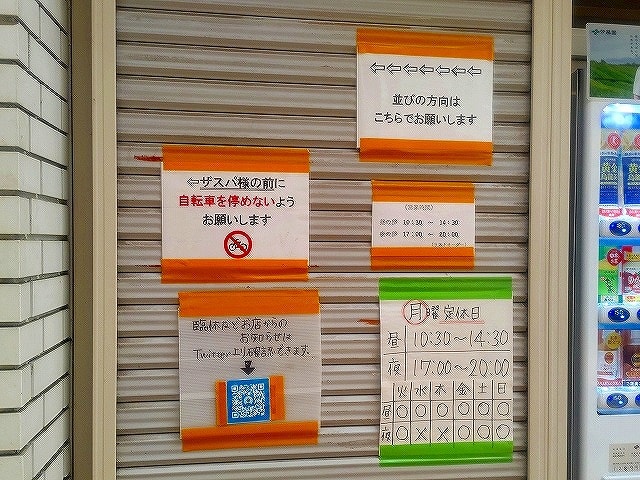 ⇦⇦⇦⇦⇦⇦⇦
並びの方向は
こちらでお願いします
⇦ザスパ様の前に
自転車を停めないよう
お願いします
10:30 ～ 14:30
17:00 ～ 20:00
臨休などお店からの
お知らせは
Twitterより確認できます。
月曜定休日
昼 10:30～14:30
夜 17:00～20:00
火 水 木 金 土 日
昼 ○ ○ ○ ○ ○ ○
夜 ○ × × ○ ○ ○
伊藤園